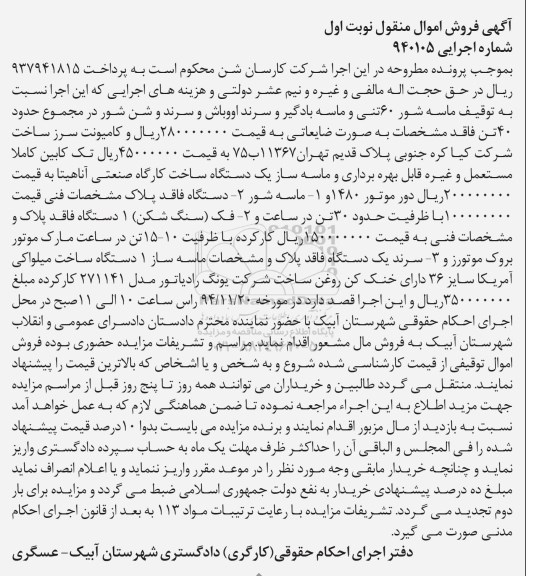 آگهی فروش اموال منقول نوبت اول
شماره اجرایی ۹۴۰۱۰۵
بموجب پرونده مطروحه در این اجرا شرکت کارسان شن محکوم است به پرداخت ۹۳۷۹۴۱۸۱۵
ریال در حق حجت اله مالفی و غیره و نیم عشر دولتی و هزینه های اجرایی که این اجرا نسبت
به توقیف ماسه شور ۶۰تنی و ماسه بادگیر و سرند اوواش و سرند و شن شور در مجموع حدود
۴۰تن فاقد مشخصات به صورت ضایعاتی به قیمت ۲۸۰۰۰۰۰۰۰ریال و کامیونت سرز ساخت
شرکت کیا کره جنوبی پلاک قدیم تهران۱۱۳۶۷ب۷۵ به قیمت ۴۵۰۰۰۰۰۰ریال تک کابین کاملا
مستعمل و غیره قابل بهره برداری و ماسه ساز یک دستگاه ساخت کارگاه صنعتی آناهیتا به قیمت
۲۰۰۰۰۰۰۰۰ریال دور موتور ۱۴۸۰و ۱- ماسه شور ۲- دستگاه فاقد پلاک مشخصات فنی قیمت
۱۰۰۰۰۰۰۰۰با ظرفیت حدود ۳۰تن در ساعت و ۲- فک (سنگ شکن) ۱ دستگاه فاقد پلاک و
مشخصات فنی به قیمت ۱۵۰۰۰۰۰۰۰ریال کارکرده با ظرفیت ۱۰-۱۵تن در ساعت مارک موتور
بروک موتورز و ۳- سرند یک دستگاه فاقد پلاک و مشخصات ماسه ساز ۱ دستگاه ساخت میلواکی
آمریکا سایز ۳۶ دارای خنک کن روغن ساخت شرکت یونگ رادیاتور مدل ۲۷۱۱۴۱ کارکرده مبلغ
۳۵۰۰۰۰۰۰۰ریال و این اجرا قصد دارد در مورخه ۹۴/۱۱/۲۰ راس ساعت ۱۰ الی ۱۱صبح در محل
اجرای احکام حقوقی شهرستان آبیک با حضور نماینده محترم دادستان دادسرای عمومی و انقلاب
شهرستان آبیک به فروش مال مشروح اقدام نماید. مراسم و تشریفات مزایده حضوری بوده فروش
اموال توقیفی از قیمت کارشناسی شده شروع و به شخص و یا اشخاص که بالاترین قیمت را پیشنهاد
نمایند. منتقل می گردد طالبین و خریداران می توانند همه روز تا پنج روز قبل از مراسم مزایده
جهت مزید اطلاع به این اجراء مراجعه نموده تا ضمن هماهنگی لازم که به عمل خواهد آمد
نسبت به بازدید از مال مزبور اقدام نمایند و برنده مزایده می بایست بدوا ۱۰درصد قیمت پیشنهاد
شده را فی المجلس و الباقی آن را حداکثر ظرف مهلت یک ماه به حساب سپرده دادگستری واریز
نماید و چنانچه خریدار مابقی وجه مورد نظر را در موعد مقرر واریز ننماید و یا اعلام انصراف نماید
مبلغ ده درصد پیشنهادی خریدار به نفع دولت جمهوری اسلامی ضبط می گردد و مزایده برای بار
دوم تجدید می گردد. تشریفات مزایده با رعایت ترتیبات مواد ۱۱۳ به بعد از قانون اجرای احکام
مدنی صورت می گیرد.
دفتر اجرای احکام حقوقی(کارگری) دادگستری شهرستان آبیک- عسگری